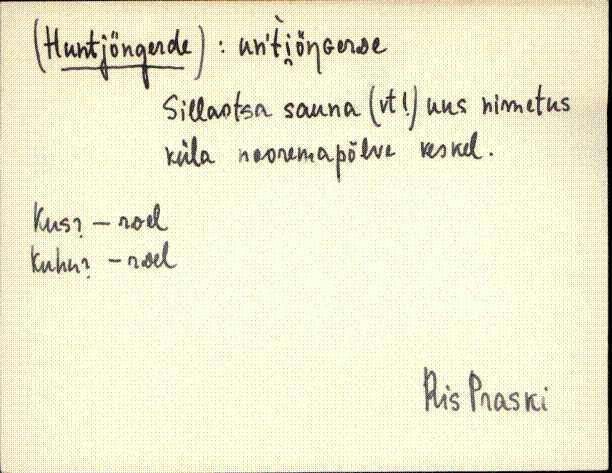 (Huntjöngerde) : un'ti̮öŋGerde
Sillaotsa sauna (vt!) uus nimetus
küla nooremapõlve keskel.
Kus? – roel
Kuhu? – roel
Ris Praski